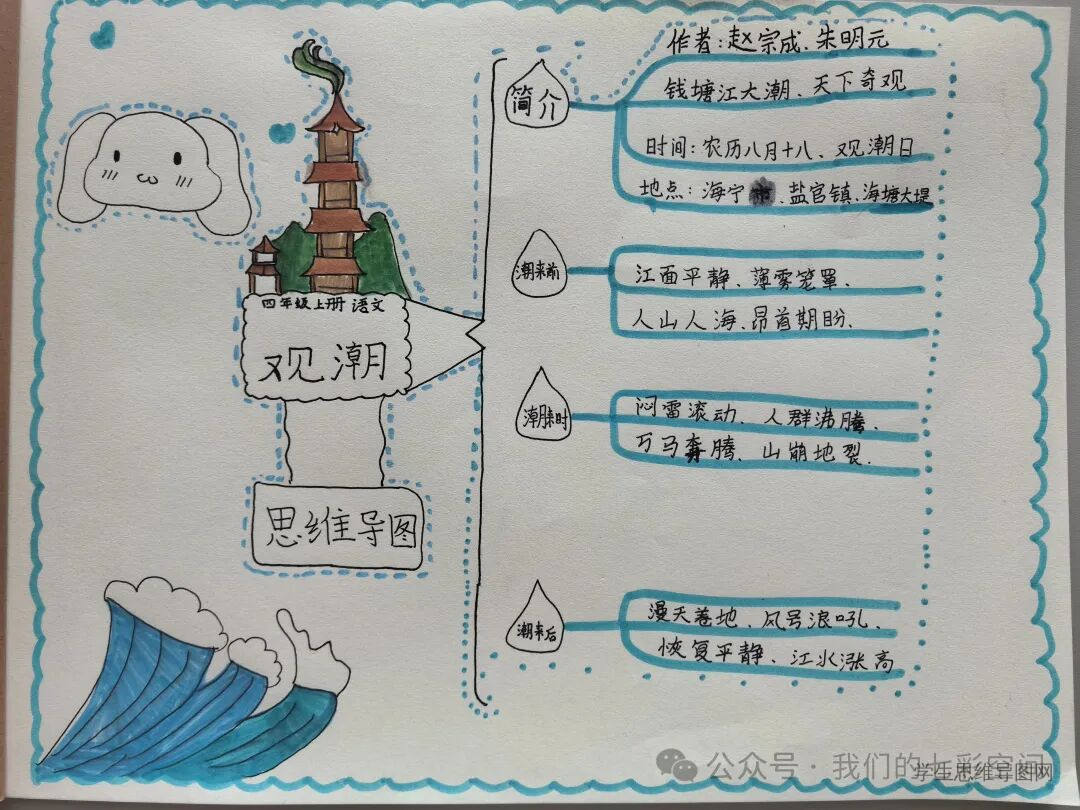 四年级上册 语文
观潮
思维导图
简介
作者:赵宗成、朱明元
钱塘江大潮、天下奇观
时间:农历八月十八、观潮日
地点:海宁 、盐官镇、海塘大堤
潮来前
江面平静、薄雾笼罩、
人山人海、昂首期盼、
潮来时
闷雷滚动、人群沸腾、
万马奔腾、山崩地裂.
潮来后
漫天卷地、风号浪吼、
恢复平静、江水涨高
公众号·我们的七彩空间
学生思维导图网